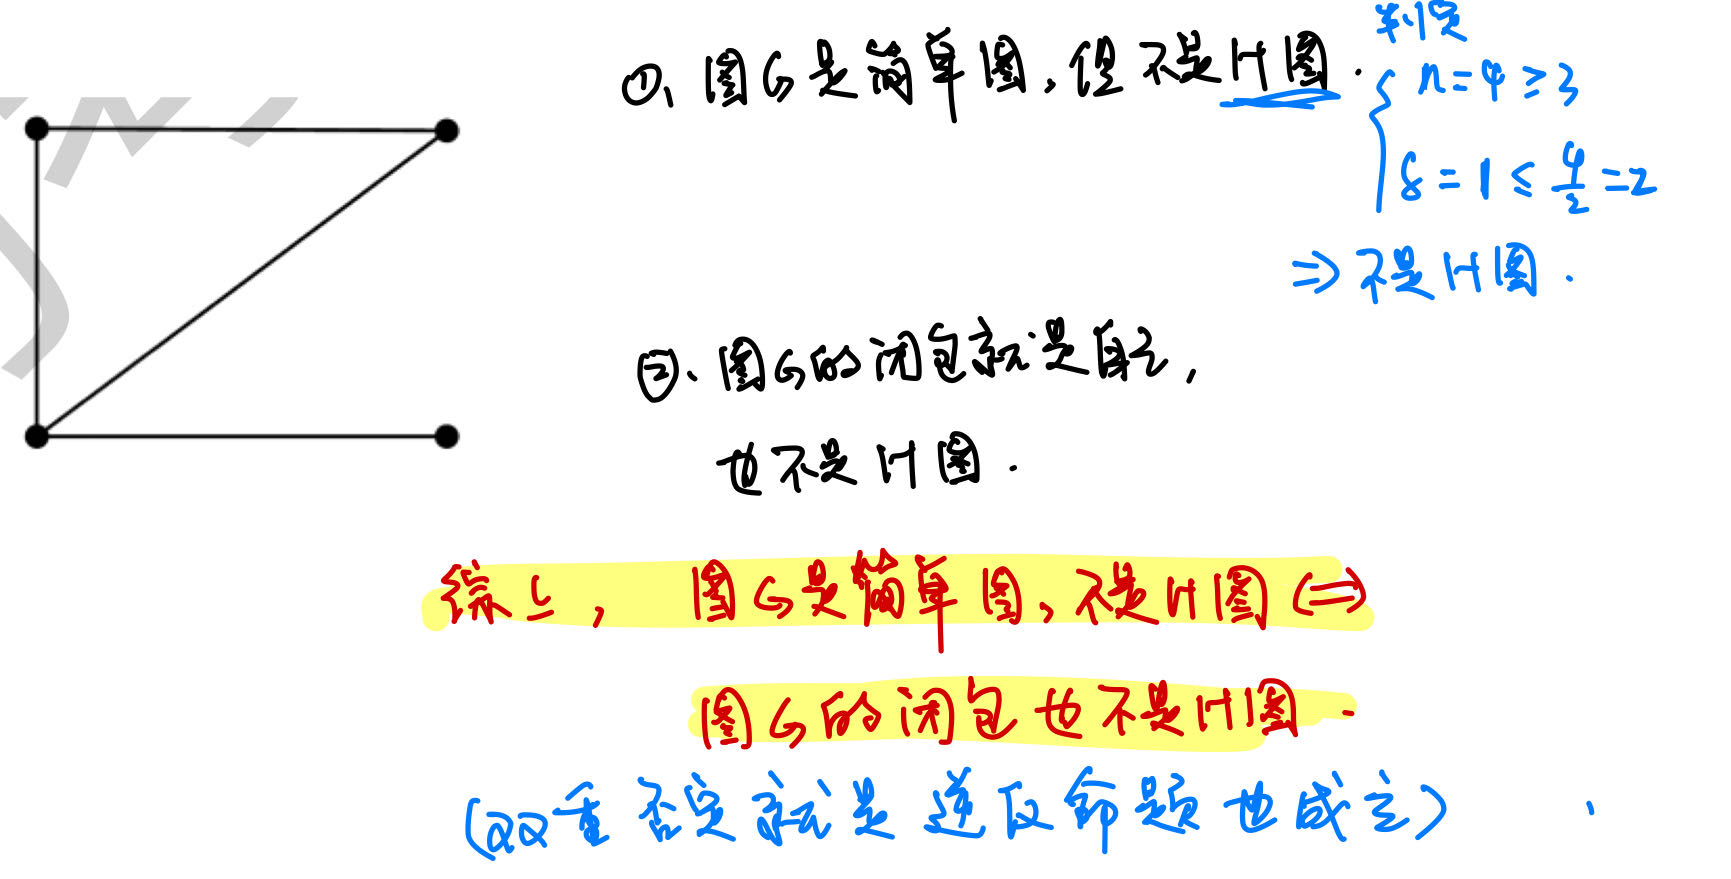 ①、图G是简单图,但不是H图.
判定
n=4≥3
δ=1≤4/2=2
⇒不是H图.
②、图G的闭包就是自己,
也不是H图.
综上, 图G是简单图,不是H图⇔
图G的闭包也不是H图.
(双重否定就是逆反命题也成立)